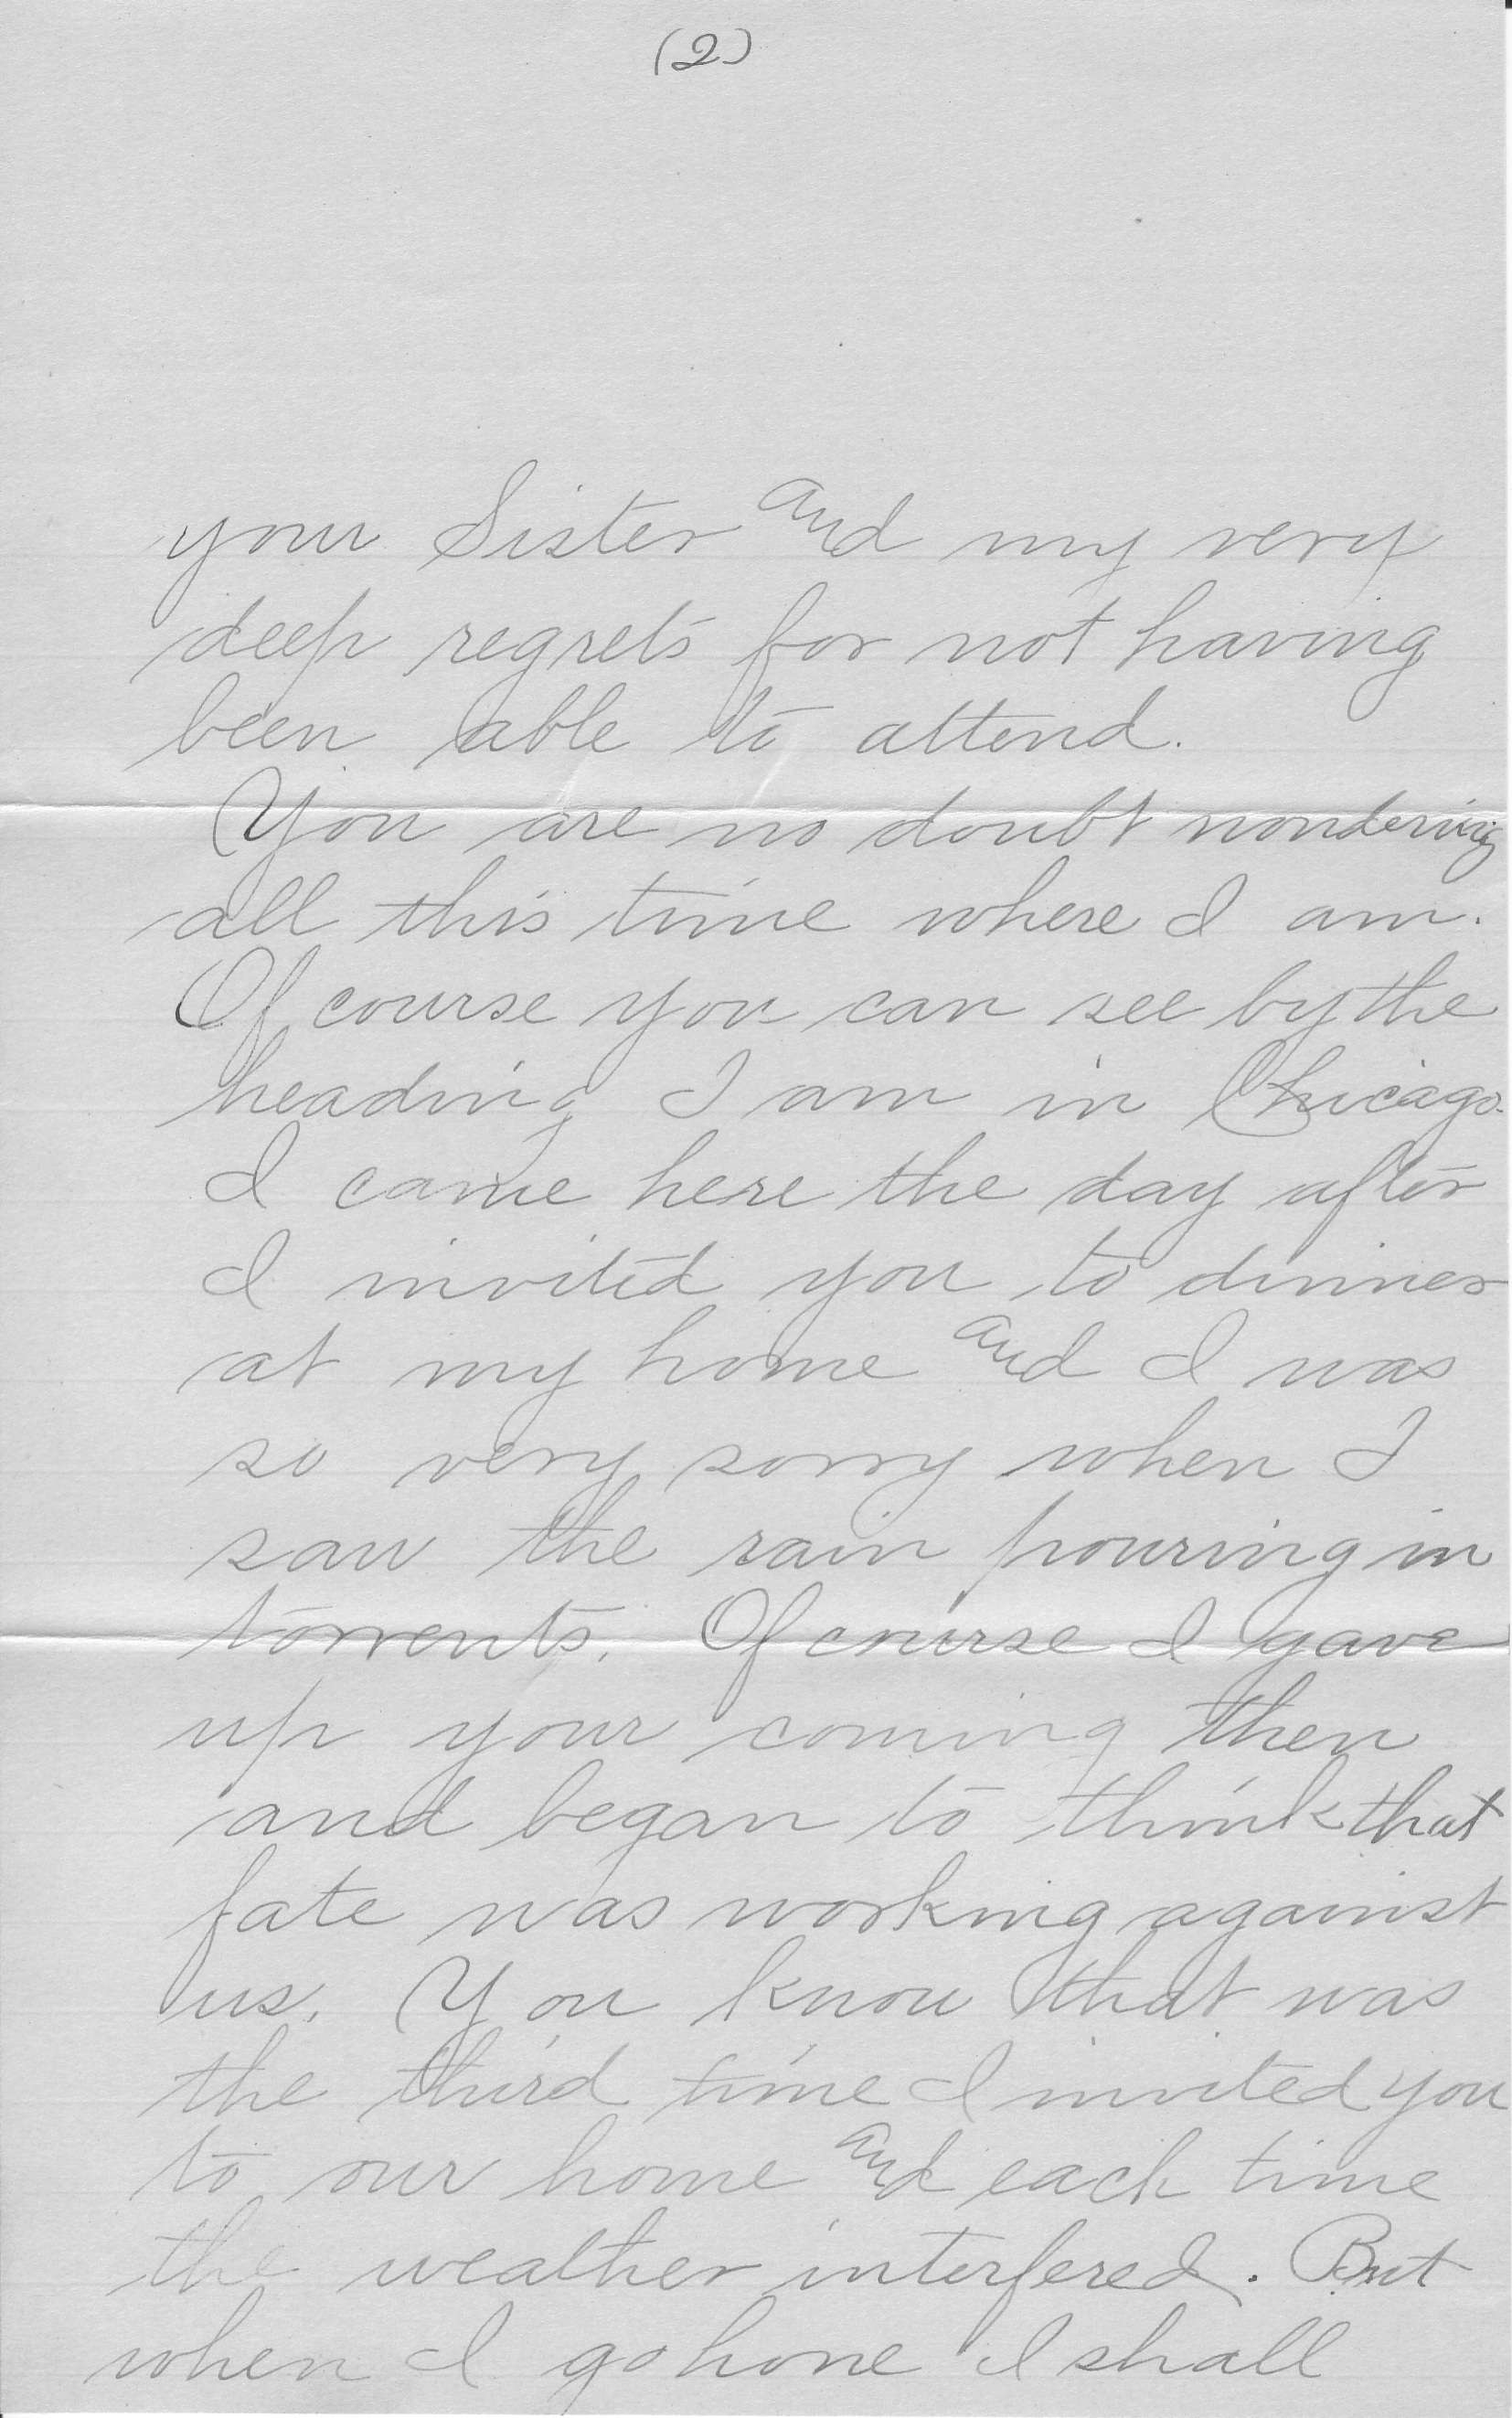 (2)
your Sister and my very
deep regrets for not having
been able to attend.
You are no doubt wondering
all this time where I am.
Of course you can see by the
heading I am in Chicago.
I came here the day after
I invited you to dinner
at my home and I was
so very sorry when I
saw the rain pouring in
torrents. Of course I gave
up your coming then
and began to think that
fate was working against
us. You know that was
the third time I invited you
to our home and each time
the weather interfered. But
when I go home I shall